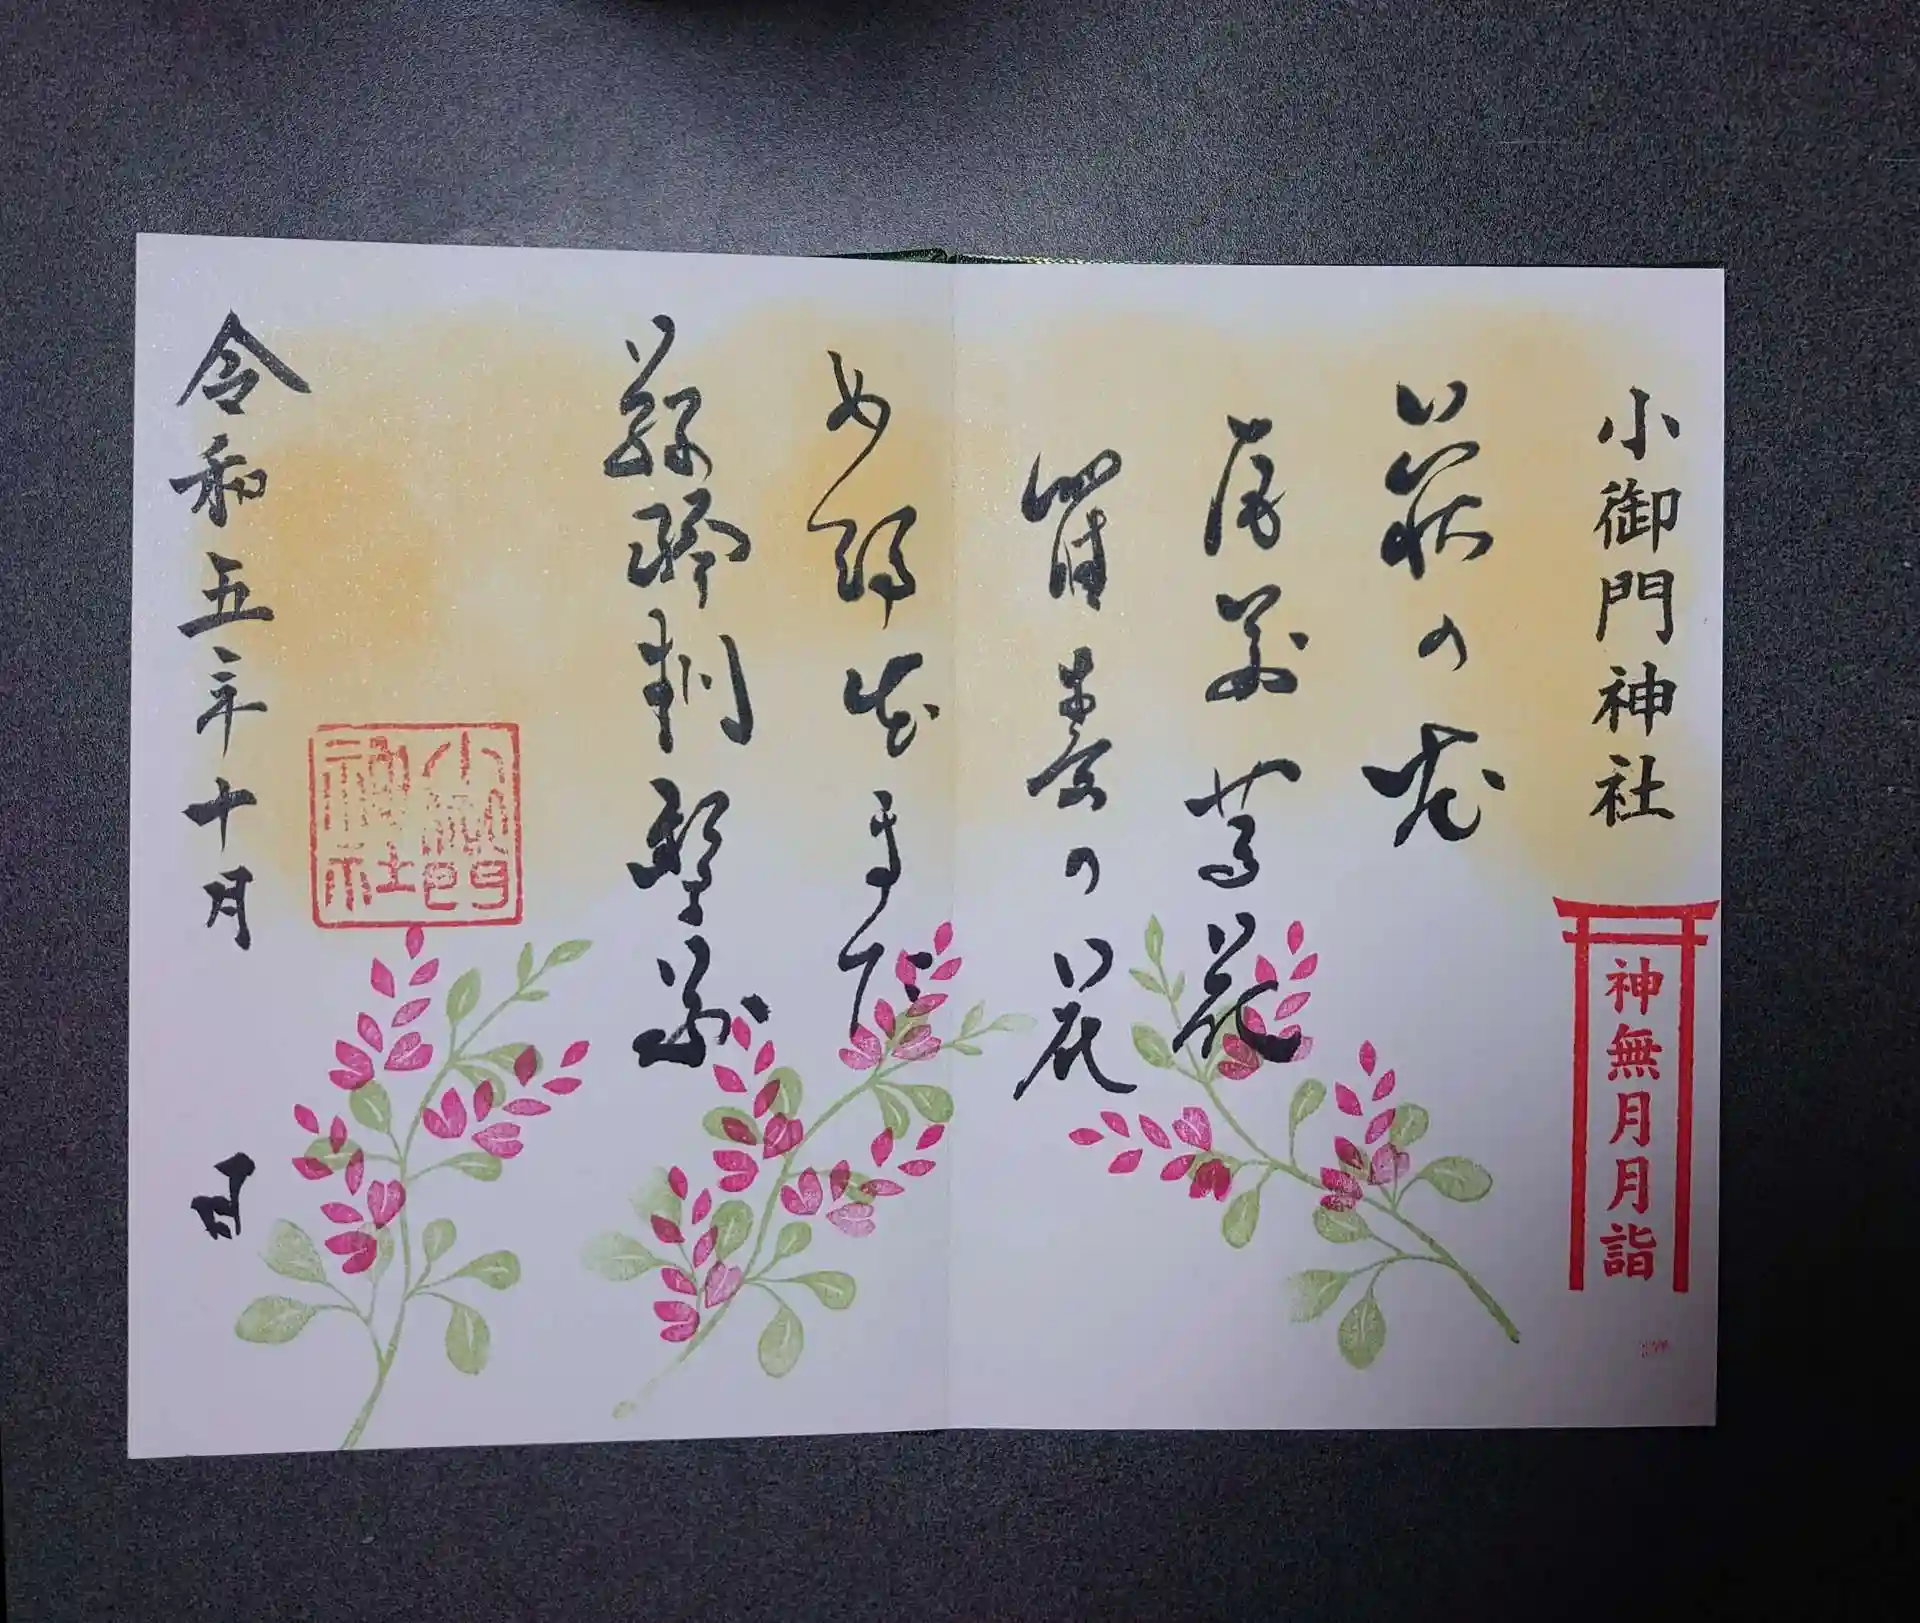 小御門神社
神無月月詣
萩の花
尾花葛花
瞿麦の花
女郎花また
藤袴朝
小御門
神社
令和五年十月 日